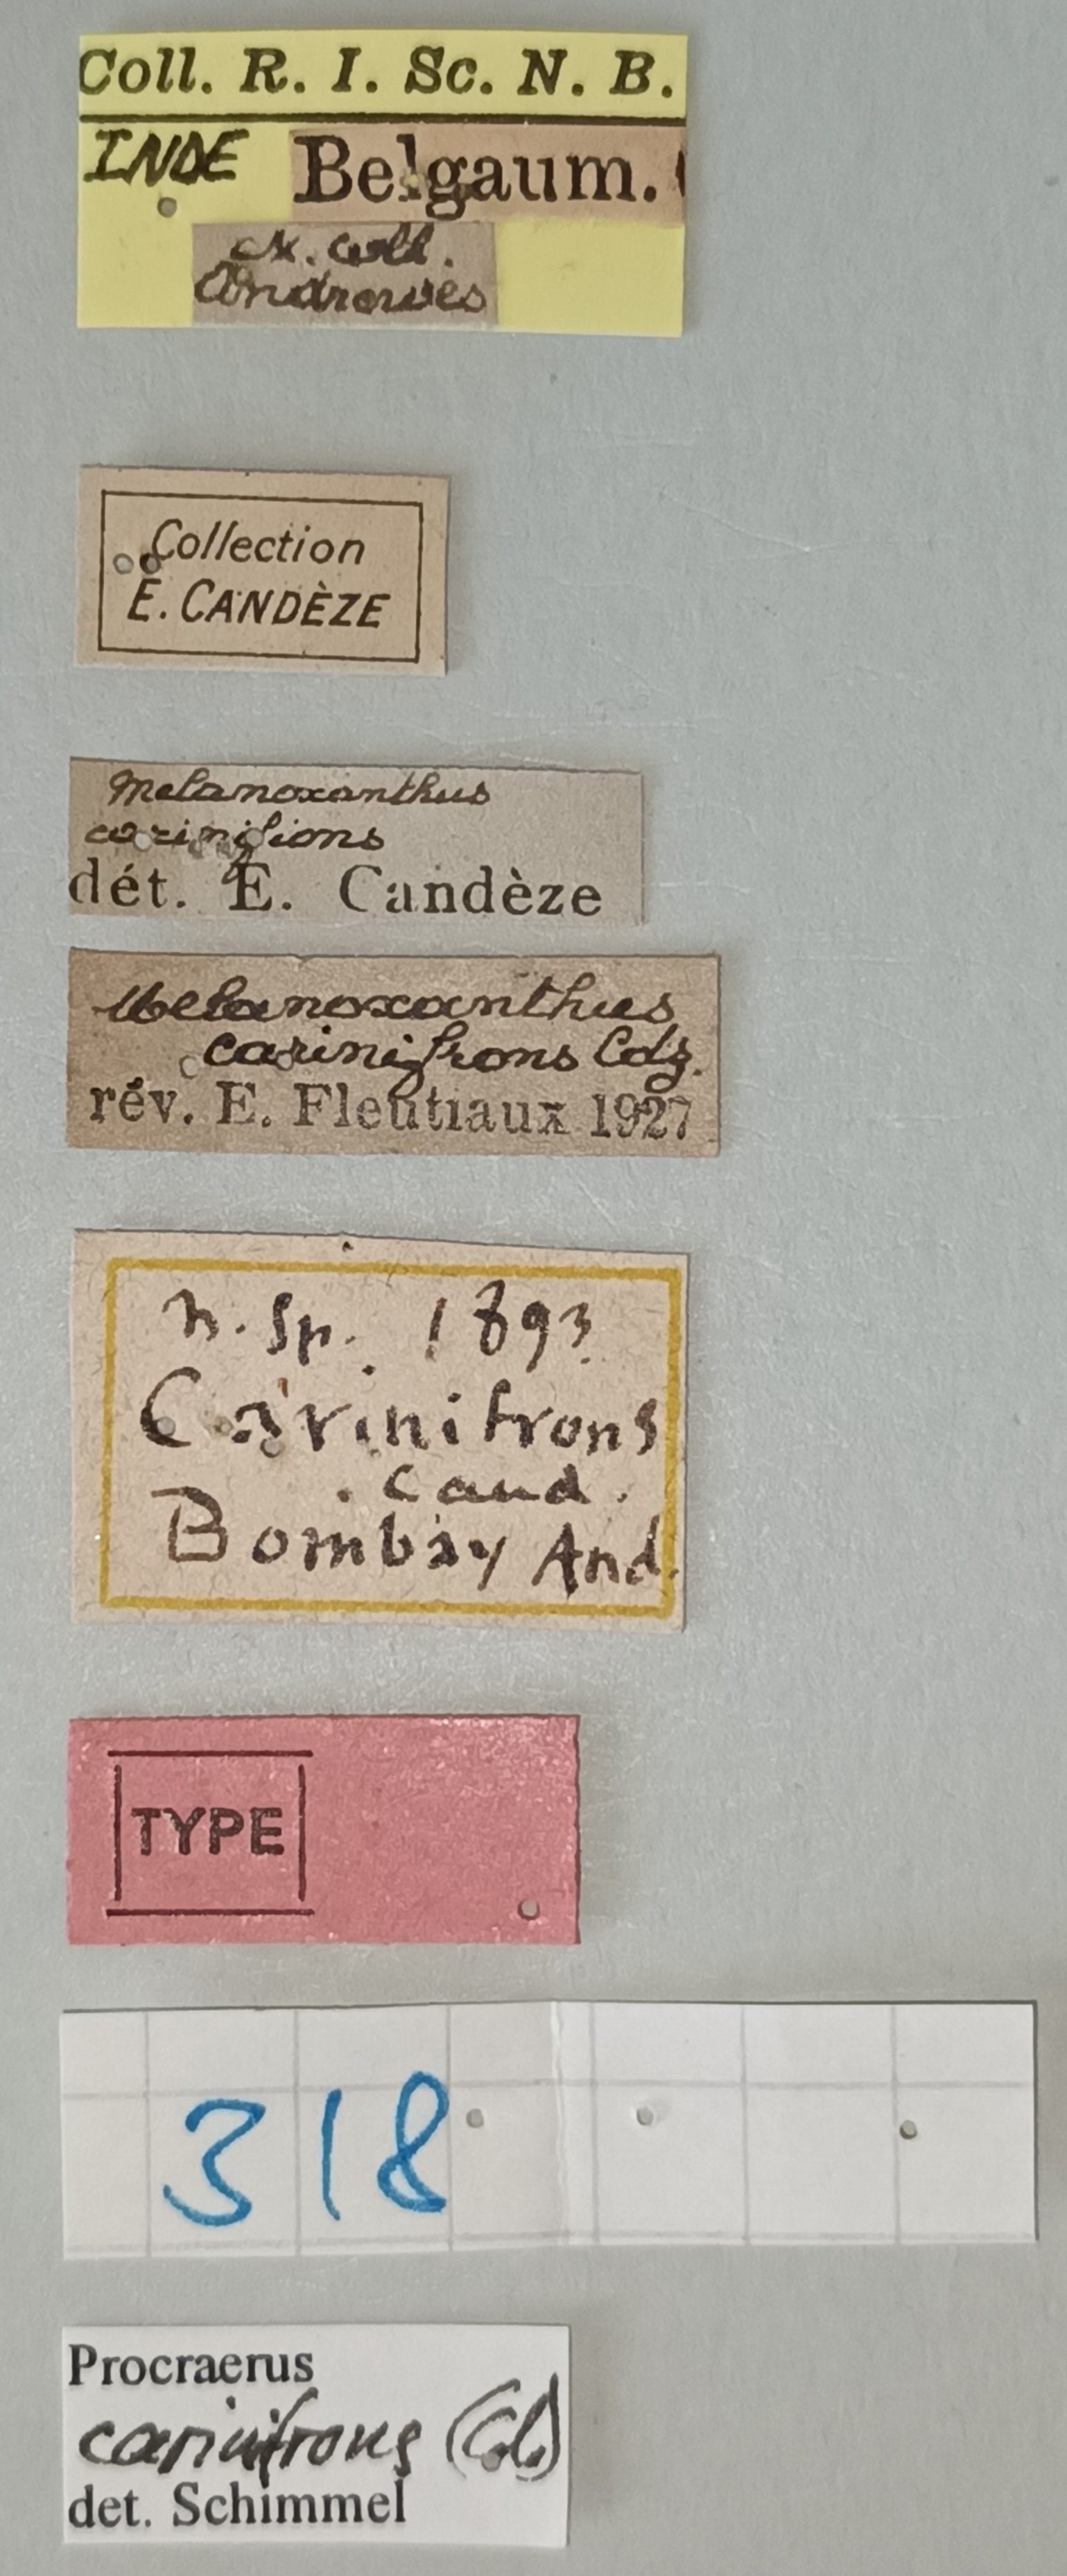 Coll. R. I. Sc. N. B.
INDE Belgaum.
coll.
Andrewes
Collection
E. CANDÈZE
Melanoxanthus
carinifrons
dét. E. Candèze
Melanoxanthus
carinifrons Cdz.
rév. E. Fleutiaux 1927
n. sp. 1893
Carinifrons
Cand.
Bombay And.
TYPE
318
Procraerus
carinifrons
det. Schimmel